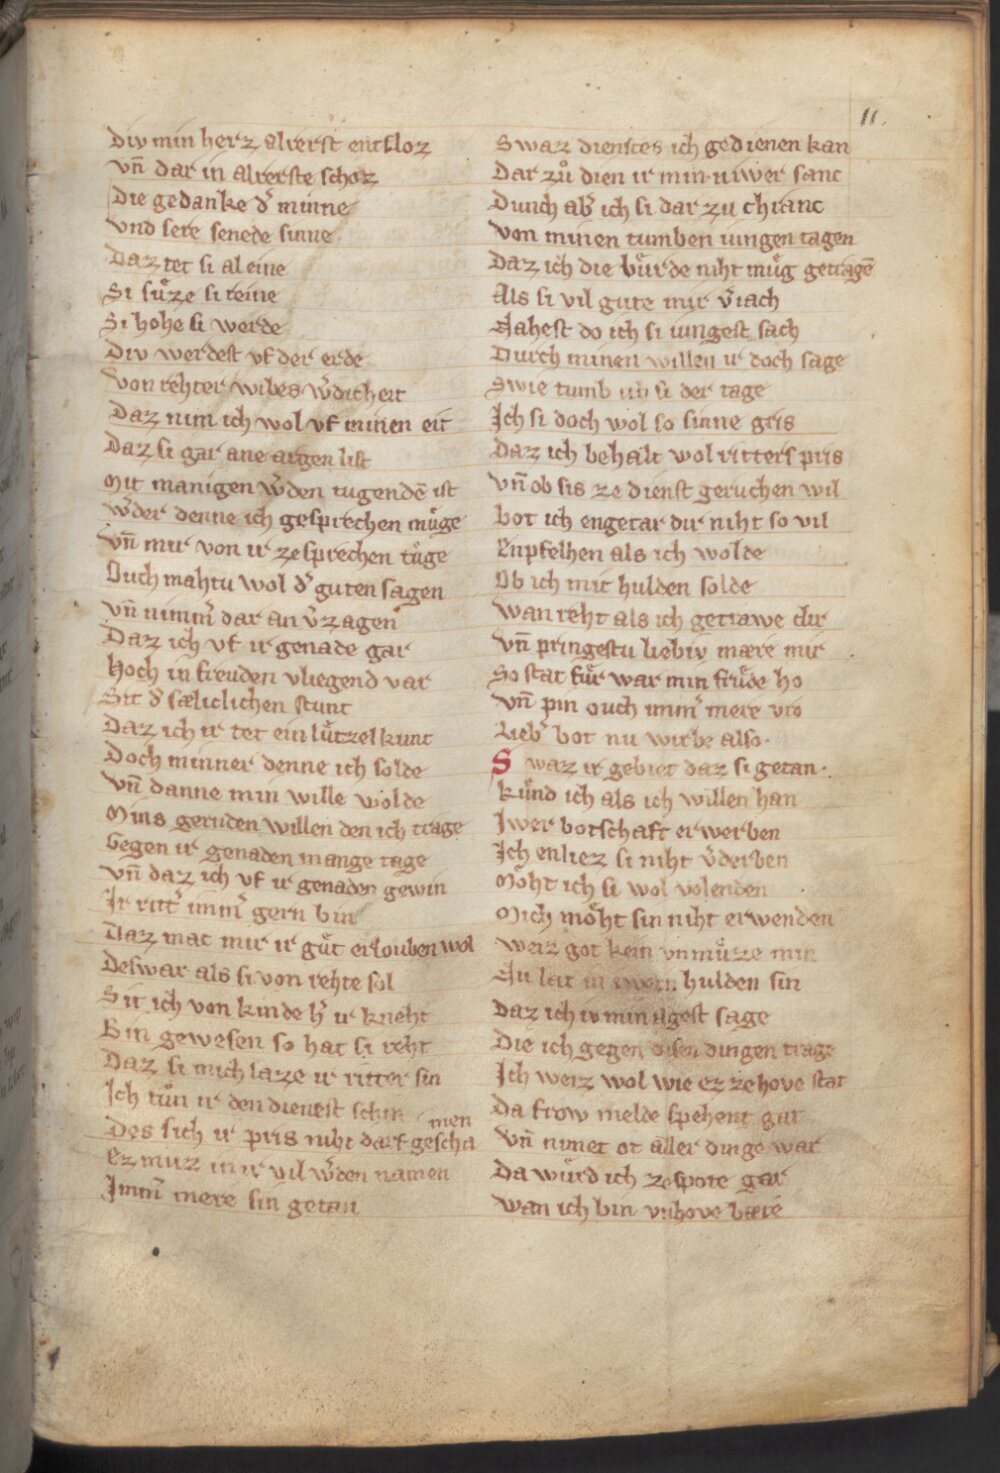 11.
Div min herz alrerst entsloz
Vn̄ dar in alrerste schoz
Die gedanke d͛ minne
Vnd sere senede sinne
Daz tet si al eine
Si sůze si reine
Si hohe si werde
Div werdest vf der erde
Von rehter wibes w͛dicheit
Daz nim ich wol vf minen eit
Daz si gar ane argen list
Mit manigen w͛den tugendē ist
W͛der denne ich gesprechen můge
Vn̄ mir von ir ze sprechen tůge
Ouch mahtu wol d͛ guten sagen
Vn̄ nimm͛ dar an v͛zagen
Daz ich vf ir genade gar
Hoch in freuden vliegend var
Sit d͛ sæliclichen stunt
Daz ich ir tet ein lůtzel kunt
Doch minner denne ich solde
Vn̄ danne min wille wolde
Mins geruden willen den ich trage
Gegen ir genaden mange tage
Vn̄ daz ich vf ir genaden gewin
Ir ritt͛ imm͛ gern bin
Daz mac mir ir gůt erlouben wol
Deswar als si von rehte sol
Sit ich von kinde h͛ ir kneht
Bin gewesen so hat si reht
Daz si mich laze ir ritter sin
Ich tůn ir den dienest schin
Des sich ir pris niht darf gescha men
Ez muz in ir vil w͛den namen
Imm͛ mere sin getan
Swaz dienstes ich gedienen kan
Dar zů dien ir min niwer sanc
Dunch ab͛ ich si dar zu chranc
Von minen tumben iungen tagen
Daz ich die bůrde niht můg getragē
Als si vil gute mir v͛iach
Nahest do ich si iungest sach
Durch minen willen ir doch sage
Swie tumb ich si der tage
Ich si doch wol so sinne gris
Daz ich behalt wol ritters pris
Vn̄ ob sis ze dienst geruchen wil
Bot ich engetar dir niht so vil
Enpfelhen als ich wolde
Ob ich mit hulden solde
Wan reht als ich getrawe dir
Vn̄ pringestu liebiv mære mir
So stat fůr war min frůde ho
Vn̄ pin ouch imm͛ mere vro
Lieb͛ bot nu wirbe also.
Swaz ir gebiet daz si getan.
Kůnd ich als ich willen han
Iwer botschaft erwerben
Ich enliez si niht v͛derben
Moͤht ich si wol volenden
Mich moͤht sin niht erwenden
Weiz got kein vnmůze min
Nu lat in iwern hulden sin
Daz ich iv min agest sage
Die ich gegen disen dingen trage
Ich weiz wol wie ez ze hove stat
Da frow melde spehent gat
Vn̄ nimet ot aller dinge war
Da wůrd ich ze spote gar
Wan ich bin vnhove bære